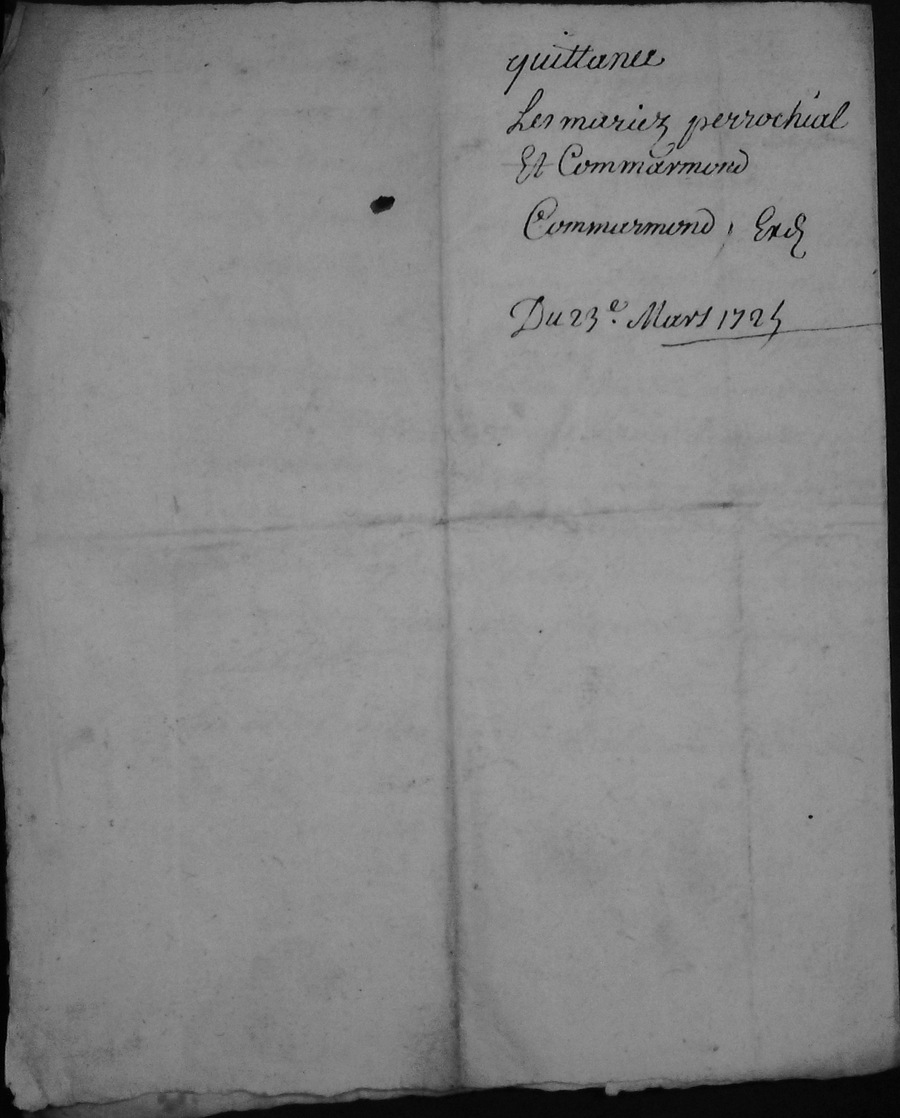 quittance
Les mariez perrochial
Et Commarmond
Commarmond
Du 23e. Mars 1725